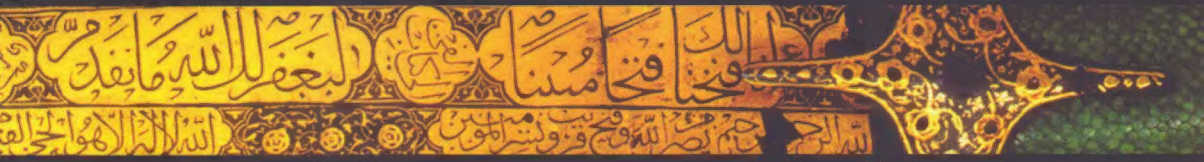 فتحنا لك فتحا مبينا ليغفر لك الله ما تقدم
الله الر حيم نصر من الله وفتح قريب وبشر المؤمنين الله لا اله الا هو الحي